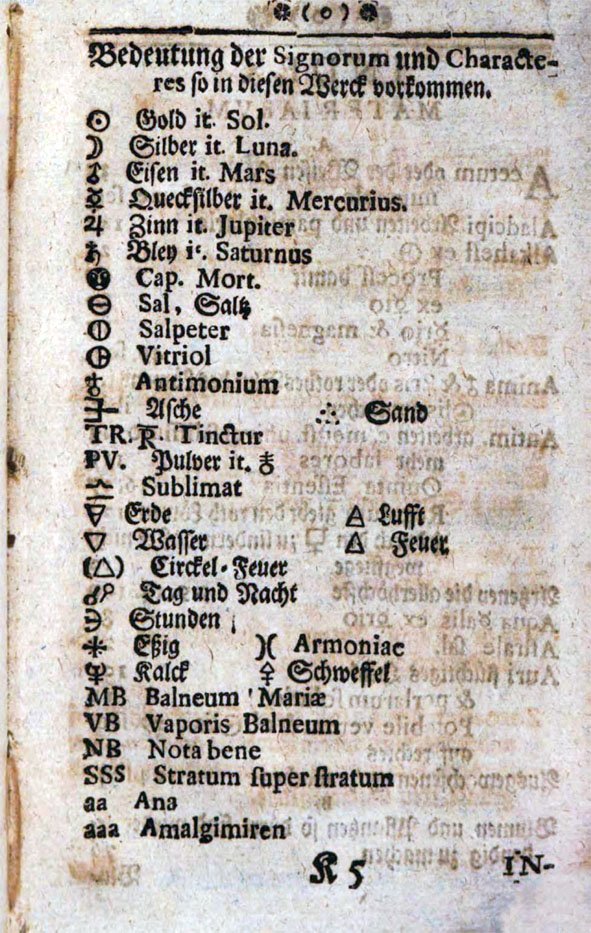 (o)
Bedeutung der Signorum und Characte-
res so in diesen Werck vorkommen.
☉ Gold it. Sol.
☽ Silber it. Luna.
♂ Eisen it. Mars
☿ Quecksilber it. Mercurius.
♃ Zinn it. Jupiter
♄ Bley it. Saturnus
Cap. Mort.
🜔 Sal, Saltz
🜕 Salpeter
🜖 Vitriol
♁ Antimonium
Asche ∴ Sand
TR. R. Tinctur
PV. Pulver it.
Sublimat
🜃 Erde 🜁 Lufft
🜄 Wasser 🜂 Feuer
(△) Circkel-Feuer
Tag und Nacht
Stunden
Eßig )( Armoniac
Kalck 🜍 Schweffel
MB Balneum Mariæ
VB Vaporis Balneum
NB Nota bene
SSS Stratum super stratum
aa Ana
aaa Amalgimiren
K 5 IN-